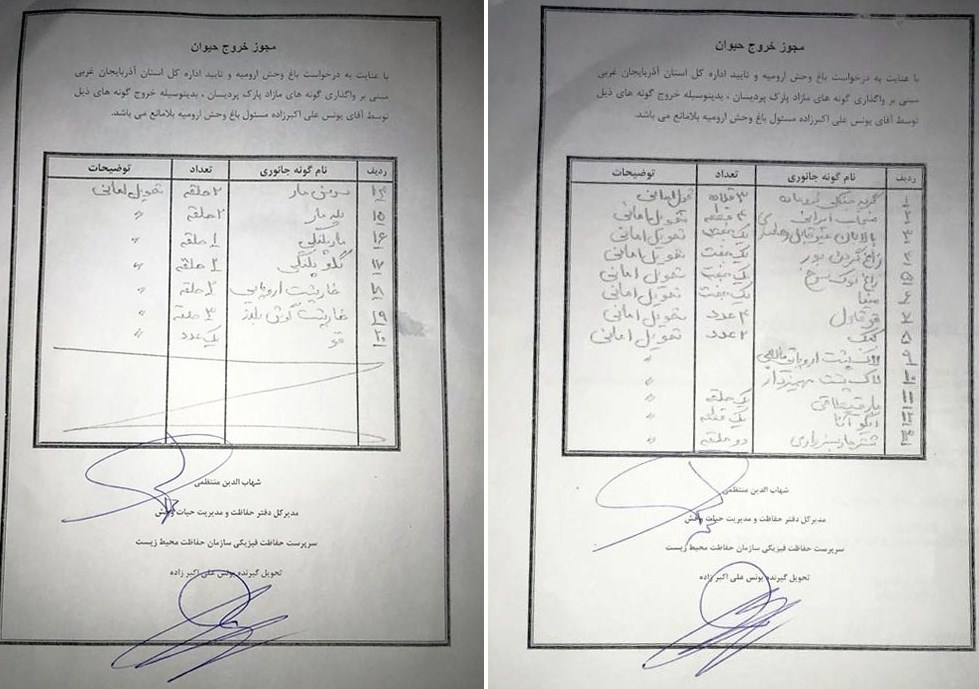 مجوز خروج حیوان
با عنایت به درخواست باغ وحش ارومیه و تایید اداره کل استان آذربایجان غربی
مبنی بر واگذاری گونه های مازاد پارک پردیسان ، بدینوسیله خروج گونه های ذیل
توسط آقای یونس علی اکبرزاده مسئول باغ وحش ارومیه بلامانع می باشد.
ردیف نام گونه جانوری تعداد توضیحات
۱ گربه جنگلی ۳ قلاده تحویل امانی
۲ ایرانی ۴ قطعه تحویل امانی
۳ بالابان یک جفت تحویل امانی
۴ زاغ گردن بور یک جفت تحویل امانی
۵ زاغ نوک سرخ یک جفت تحویل امانی
۶ مینا یک جفت تحویل امانی
۷ قرقاول ۴ عدد تحویل امانی
۸ کبک ۲ عدد تحویل امانی
۹ لاک پشت اروپایی "
۱۰ لاک پشت مهمیزدار "
۱۱ مار قیطانی یک حلقه "
۱۲ ایگوانا یک قطعه "
۱۳ شتر مار سبزواری دو حلقه "
شهاب الدین منتظمی
مدیرکل دفتر حفاظت و مدیریت حیات وحش
سرپرست حفاظت فیزیکی سازمان حفاظت محیط زیست
تحویل گیرنده یونس علی اکبر زاده
مجوز خروج حیوان
با عنایت به درخواست باغ وحش ارومیه و تایید اداره کل استان آذربایجان غربی
مبنی بر واگذاری گونه های مازاد پارک پردیسان ، بدینوسیله خروج گونه های ذیل
توسط آقای یونس علی اکبرزاده مسئول باغ وحش ارومیه بلامانع می باشد.
ردیف نام گونه جانوری تعداد توضیحات
۱۴ سوسن مار ۲ حلقه تحویل امانی
۱۵ پله مار ۲ حلقه "
۱۶ مار پلنگی ۱ حلقه "
۱۷ گکو پلنگی ۲ حلقه "
۱۸ خارپشت اروپایی ۲ حلقه "
۱۹ خارپشت گوش بلند ۳ حلقه "
۲۰ قو یک عدد "
شهاب الدین منتظمی
مدیرکل دفتر حفاظت و مدیریت حیات وحش
سرپرست حفاظت فیزیکی سازمان حفاظت محیط زیست
تحویل گیرنده یونس علی اکبر زاده